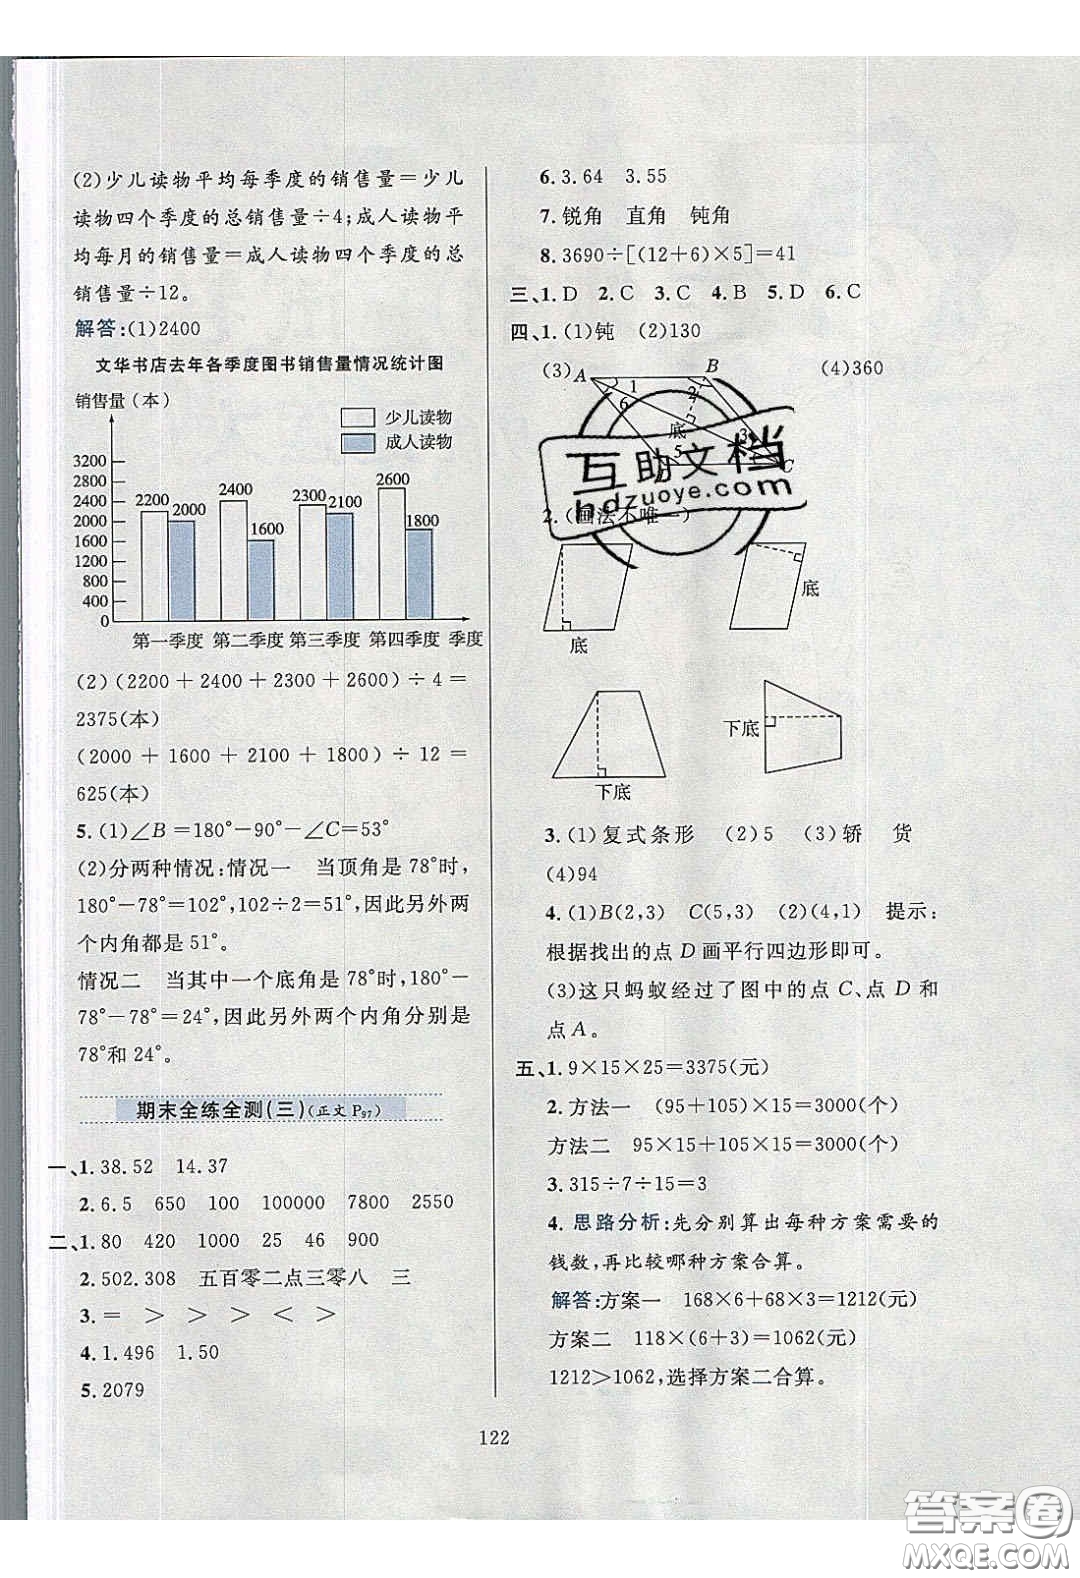 (2)少儿读物平均每季度的销售量＝少儿
读物四个季度的总销售量÷4;成人读物平
均每月的销售量＝成人读物四个季度的总
销售量÷12。
解答:(1)2400
文华书店去年各季度图书销售量情况统计图
销售量(本)
少儿读物
成人读物
3200
2800
2400
2000
1600
1200
800
400
0
2200
2000
2400
1600
2300
2100
2600
1800
第一季度 第二季度 第三季度 第四季度 季度
(2)(2200＋2400＋2300＋2600)÷4＝
2375(本)
(2000＋1600＋2100＋1800)÷12＝
625(本)
5.(1)∠B＝180°－90°－∠C＝53°
(2)分两种情况:情况一 当顶角是78°时,
180°－78°＝102°,102÷2＝51°,因此另外两
个内角都是51°。
情况二 当其中一个底角是78°时,180°－
78°－78°＝24°,因此另外两个内角分别是
78°和24°。
期末全练全测(三)(正文P97)
一、1.38.52 14.37
2.6.5 650 100 100000 7800 2550
二、1.80 420 1000 25 46 900
2.502.308 五百零二点三零八 三
3.＝ ＞ ＞ ＞ ＜ ＞
4.1.496 1.50
5.2079
6.3.64 3.55
7.锐角 直角 钝角
8.3690÷[(12＋6)×5]＝41
三、1.D 2.C 3.C 4.B 5.D 6.C
四、1.(1)钝 (2)130
(3) A B (4)360
1
2
6
底
3
5
C
互助文档
hdzuoye.com
2.(画法不唯一)
底
底
下底
下底
3.(1)复式条形 (2)5 (3)轿 货
(4)94
4.(1)B(2,3) C(5,3) (2)(4,1) 提示:
根据找出的点D画平行四边形即可。
(3)这只蚂蚁经过了图中的点C、点D和
点A。
五、1.9×15×25＝3375(元)
2.方法一 (95＋105)×15＝3000(个)
方法二 95×15＋105×15＝3000(个)
3.315÷7÷15＝3
4.思路分析:先分别算出每种方案需要的
钱数,再比较哪种方案合算。
解答:方案一 168×6＋68×3＝1212(元)
方案二 118×(6＋3)＝1062(元)
1212＞1062,选择方案二合算。
122
答案圈
MXQE.COM